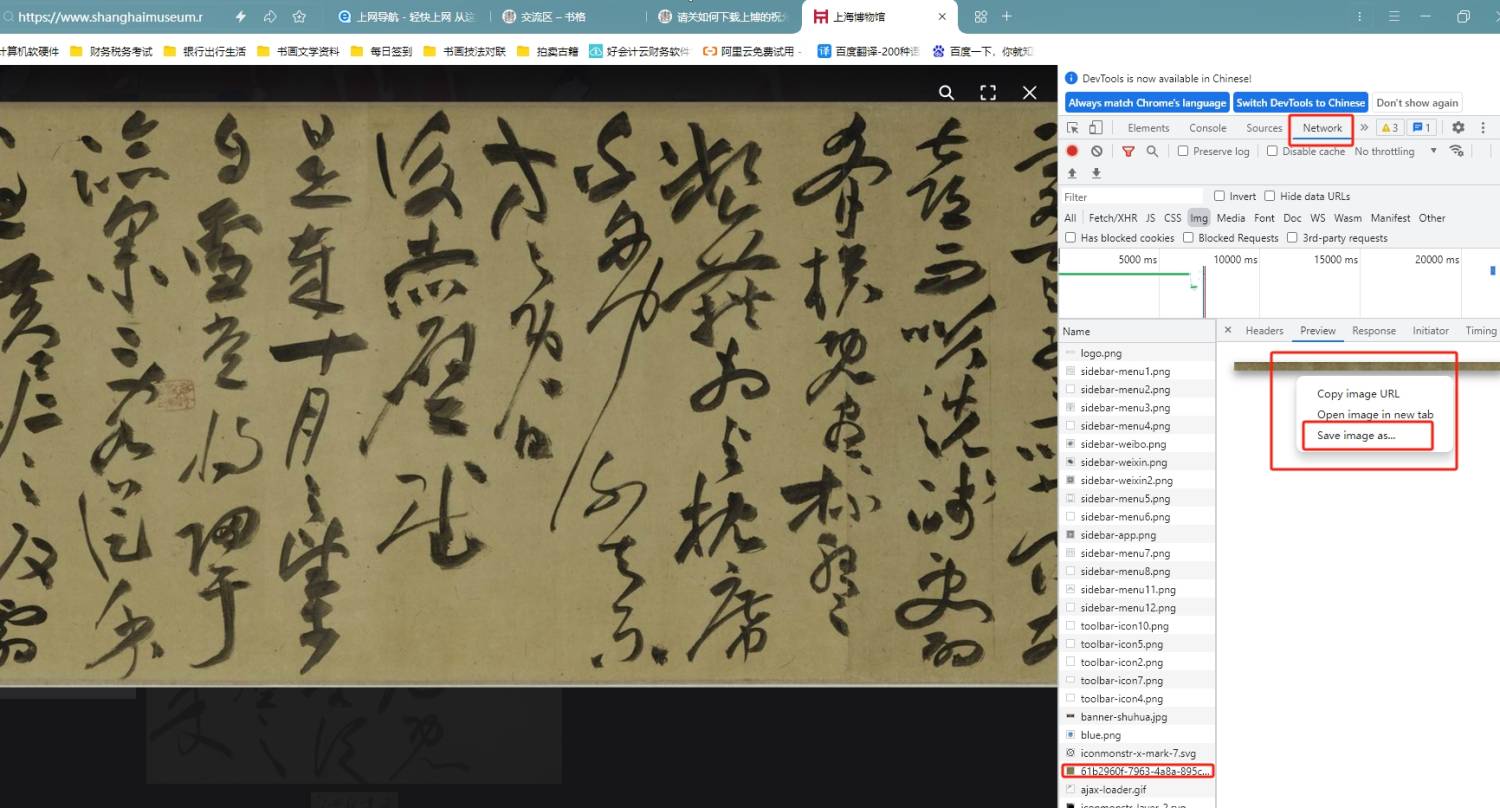 https://www.shanghaimuseum.r
上网导航 - 轻快上网 从这
交流区 – 书格
请关如何下载上博的祝允
上海博物馆
计算机软硬件
财务税务考试
银行出行生活
书画文学资料
每日签到
书画技法对联
拍卖古籍
好会计云财务软件
阿里云免费试用 -
百度翻译-200种语
百度一下，你就知
喜而笑洗盞更酌
肴核既盡杯盤
狼藉相與枕
乎舟中不知東
方之既白
後赤壁賦
是歲十月之望步
自雪堂將歸于
臨皋二客從余
DevTools is now available in Chinese!
Always match Chrome's language
Switch DevTools to Chinese
Don't show again
Elements
Console
Sources
Network
3
1
Preserve log
Disable cache
No throttling
Filter
Invert
Hide data URLs
All
Fetch/XHR
JS
CSS
Img
Media
Font
Doc
WS
Wasm
Manifest
Other
Has blocked cookies
Blocked Requests
3rd-party requests
5000 ms
10000 ms
15000 ms
20000 ms
Name
Headers
Preview
Response
Initiator
Timing
logo.png
sidebar-menu1.png
sidebar-menu2.png
sidebar-menu3.png
sidebar-menu4.png
sidebar-weibo.png
sidebar-weixin.png
sidebar-weixin2.png
sidebar-menu5.png
sidebar-menu6.png
sidebar-app.png
sidebar-menu7.png
sidebar-menu8.png
sidebar-menu11.png
sidebar-menu12.png
toolbar-icon10.png
toolbar-icon5.png
toolbar-icon2.png
toolbar-icon7.png
toolbar-icon4.png
banner-shuhua.jpg
blue.png
iconmonstr-x-mark-7.svg
61b2960f-7963-4a8a-895c...
ajax-loader.gif
iconmonstr-layer-2.svg
Copy image URL
Open image in new tab
Save image as...